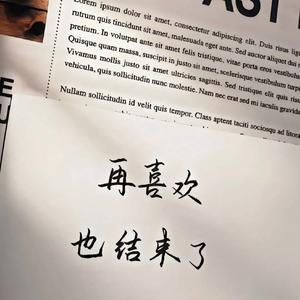 AST
Lorem ipsum dolor sit amet, consectetur adipiscing elit. Duis risus
rutrum quis tincidunt sit amet, malesuada eget ante. Sed auctor aliquet dui
pretium. In volutpat ante sit amet felis tristique, vitae porta eros vestibulum
Quisque quam massa, suscipit in justo sit amet, scelerisque vestibulum turpis
Vivamus mollis justo sit amet ultricies sagittis. Sed tristique elit quis
vehicula, quis sollicitudin nunc molestie. Nam nec erat sed mi iaculis gravida
Nullam sollicitudin id velit quis tempor. Class aptent taciti sociosqu ad
E
U
再喜欢
也结束了